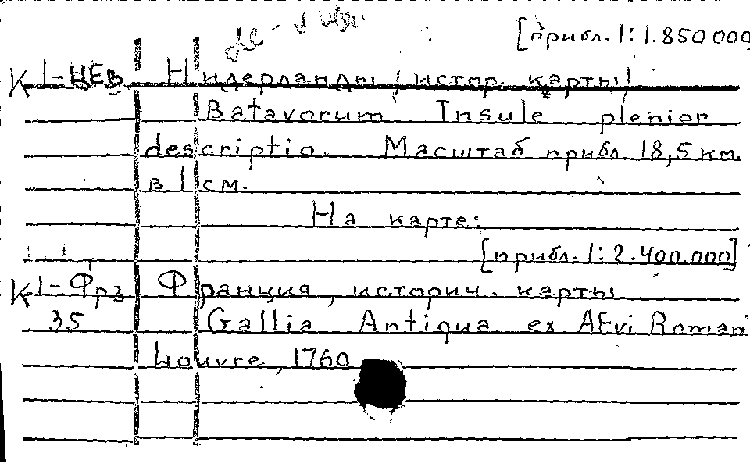 [прибл. 1:1.850 000
К 1-ЦЕв Нидерланды (истор. карты)
Batavorum Insule plenior
descriptio. Масштаб прибл. 18,5 км.
в 1 см.
На карте:
[прибл. 1:2.400.000]
К 1-Фрз Франция, историч. карты
35 Gallia Antiqua ex AEvi Romani
Louvre, 1760